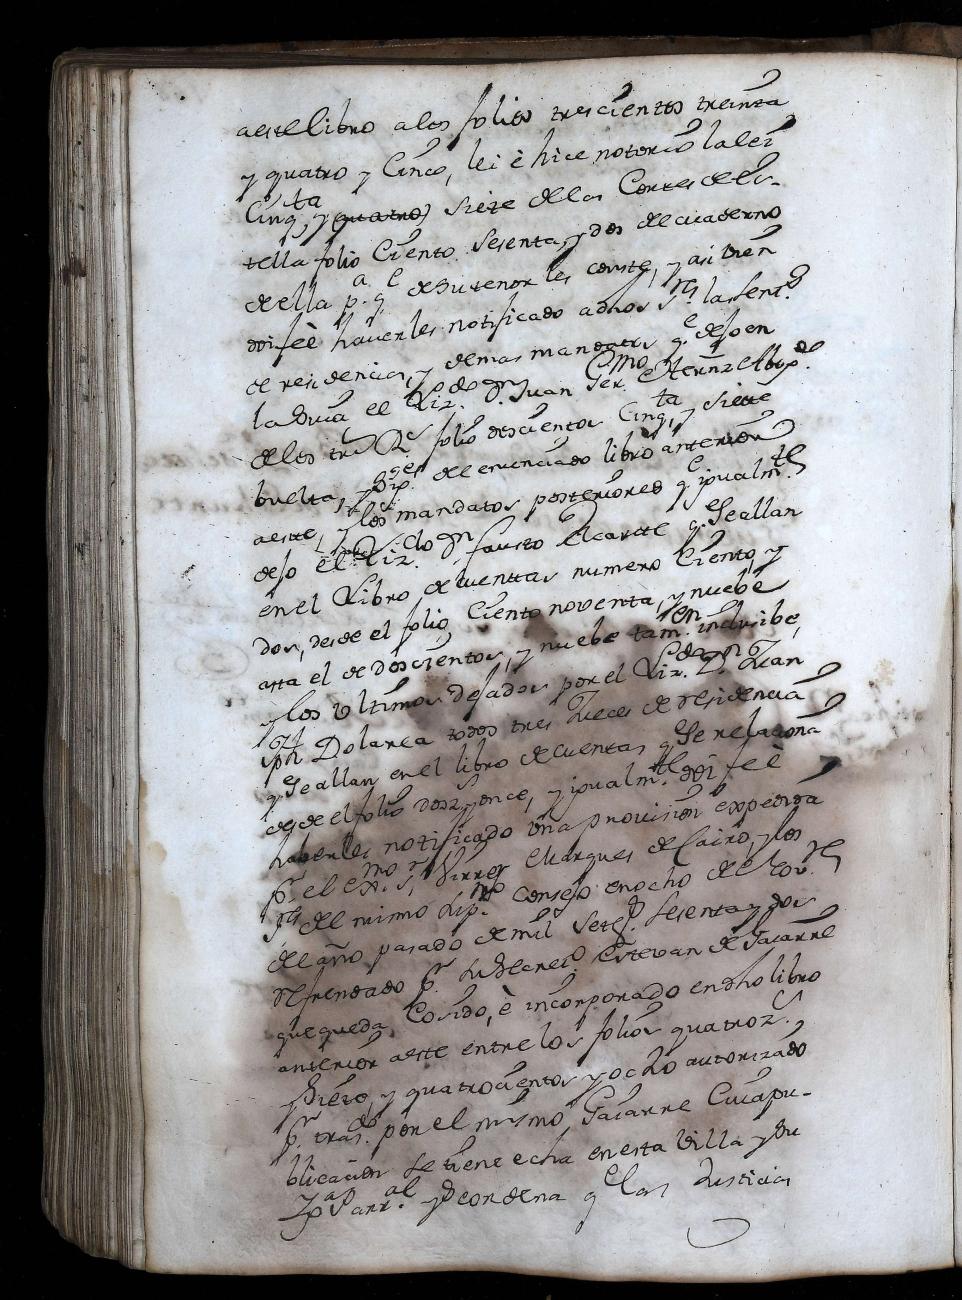 a este libro a los folios trescientos treinta
y quatro y Cinco, lei è hice notorio la lei
Cinq.ta y quatro) siete de las Cortes de Es-
tella folio Ciento sesenta, y dos de cuaderno
de ella p.a q.e de su tenor les conste, y asi bien
doi feè haverles notificado a dhos S.res las sent.s
de residencia, y demas mandatos q.e dejo en
la dicha el Liz.do D.n Juan
de los folio doscientos Cinq.ta y siette
buelta, y sig.tes del enunciado libro anterior
a este, y los mandatos posteriores q.e igualm.te
dejo el Liz.do D.n Fausto Elcarte q.e se allan
en el Libro de cuenttas numero Ciento, y
dos, desde el folio Ciento noventa, y nuebe
asta el de doscientos, y nuebe tam.en inclusibe,
y los vltimos dejados por el Liz.do D.n Juan
Dolarea todos tres Jueces de residencia
q.e se allan en el libro de cuentas q.e se relaciona
desde el folio y once, y igualm.te doi feè
haverles notificado vna provision expedida
p.r el ex.mo S.r Virrey Marques de Cairo, y los
S.res del mismo Consejo en ocho de
del año pasado de mil Setez.s Sesenta y dos
refrendado p.r su Secret.o Estevan de Gaiarre
que queda Cosido, è incorporado en dho libro
anterior a este entre los folios quatroz.s
siete, y quatrocientos y ocho autorizado
p.r tras.do por el mismo Gaiarre Cuia pu-
blicacion se tiene echa en esta Villa y su
y condena q.e las Justicias